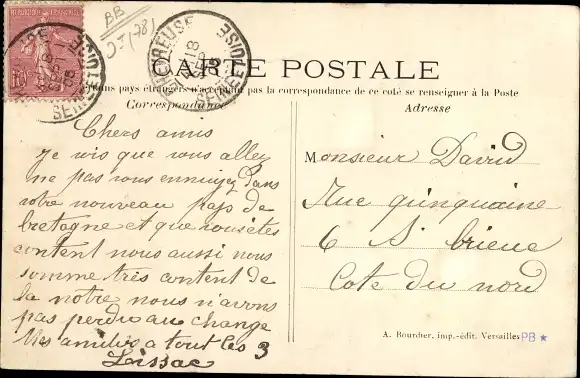 BB
(78)
REPUBLIQUE FRANCAISE
10
SEINE-ET-OISE
REUSE
18
SEPT
SEINE-ET-OISE
CARTE POSTALE
pays étrangers n'acceptent pas la correspondance de ce coté se renseigner à la Poste
Correspondance
Adresse
Chers amis
je vois que vous allez
ne pas vous ennuyez dans
votre nouveau pays de
bretagne et que vous êtes
content nous aussi nous
somme très content de
la notre nous n'avons
pas perdu au change
Mes amities a tout les 3
Loissac
Monsieur David
Rue quinquaine
6 St brieuc
Cote du nord
A. Bourdier, imp.-édit. Versailles
PB